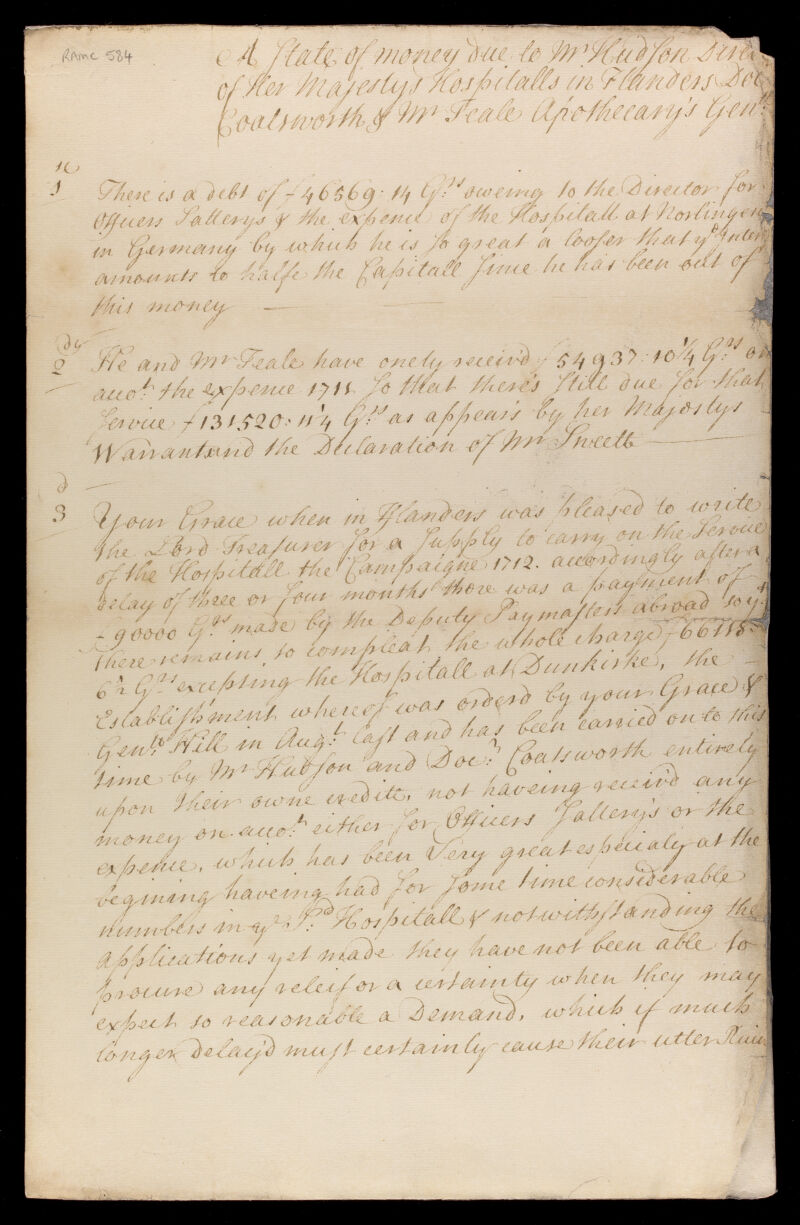 RAMC 584
A State of money due to Mr. Hudson Direc
of Her Majestys Hospitalls in Flanders Doc
Coatsworth & Mr Teale Apothecary's Genll
1
There is a debt of f46569: 14 Grs oweing to the Director for
Officers Sallerys & the expence of the Hospitall at Norlingen
in Germany by which he is so great a looser that ye Inter
amounts to halfe the Capitall Sime he has been out of
this money
2
He and Mr Teale have onely receiv'd f54937: 10¼ Grs on
accot. the expence 1711 so that there's still due for that
Service f131520: 11¼ Grs as appears by her Majestys
Warrant and the Declaration of Mr Sweett
3
Your Grace when in Flanders was pleased to write
the Lord Treasurer for a Supply to carry on the Service
of the Hospitall the Campaigne 1712. accordingly after a
delay of three or four months there was a payment of
f90000 Grs made by the Deputy Paymasters abroad so yt
there remains to compleat the whole charge f66115:
6½ Grs excepting the Hospitall at Dunkirke, the
Establishment whereof was orderd by your Grace &
Genll Hill in Augt. last and has been carried on to this
time by Mr Hudson and Docr. Coatsworth entirely
upon their owne credite, not haveing receiv'd any
money on accot. either for Officers Sallerys or the
expence, which has been Very great especialy at the
begining haveing had for some time considerable
numbers in ye Sd. Hospitall & notwithstanding the
applications yet made they have not been able to
procure any releif or a certainty when they may
expect so reasonable a Demand, which if much
longer delay'd must certainly cause their utter Ruin